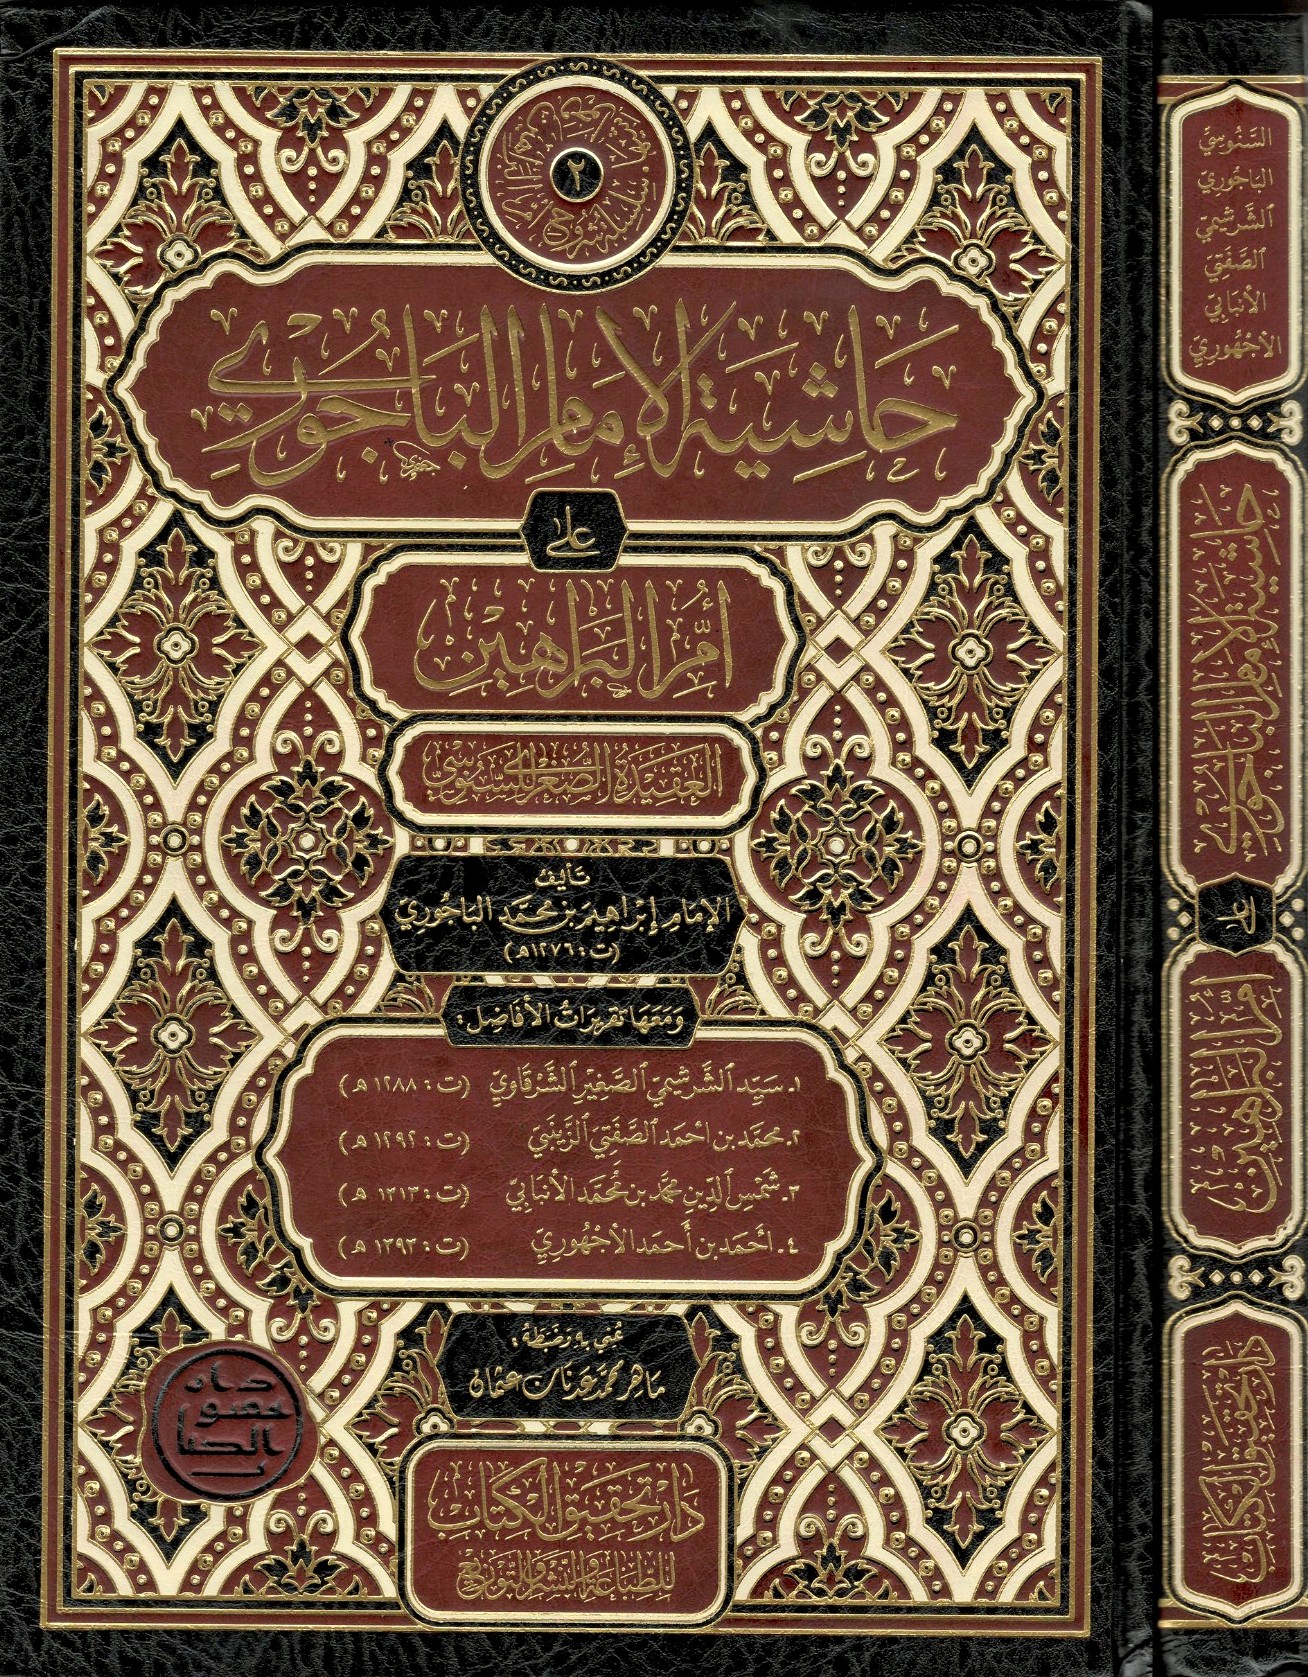 ٢
حَاشِيَة الإِمَامِ البَاجُورِي
عَلى
أُمِّ البَرَاهِين
العَقِيدَة الصُّغرَى للسَّنُوسِيّ
تَأليفُ
الإِمَام إِبْرَاهِيم بن محمَّد البَاجُورِيّ
(ت: ١٢٧٦هـ)
وَمَعَها تقريرَاتُ الأَفَاضِل:
١. سَيِّد الشَّرشِيميّ الصَّغِير الشَّرقَاويّ (ت: ١٢٨٨ هـ)
٢. محمَّد بن أحمَد الصَّفتِي الزَّينَبيّ (ت: ١٢٩٢ هـ)
٣. شَمْس الدِّين محمَّد بن مُحمَّد الأَنبَابِيّ (ت: ١٣١٣ هـ)
٤. أحمَد بن أَحمَد الأُجْهُورِيّ (ت: ١٢٩٣ هـ)
عُني به وضَبطَهُ:
مَاهِر محمَّد عَدنَان عُثمان
دَار تحقيق الكتاب
للطّباعَة وَالنّشر وَالتّوزيع
السَّنُوسِيّ
البَاجُوريّ
الشَّرشِيميّ
الصَّفتِيّ
الأنبَابيّ
الأجْهُوريّ
حَاشِيَة الإِمَام البَاجُوري
عَلى
أُمِّ البَرَاهِين
دَار تحقيق الكتاب